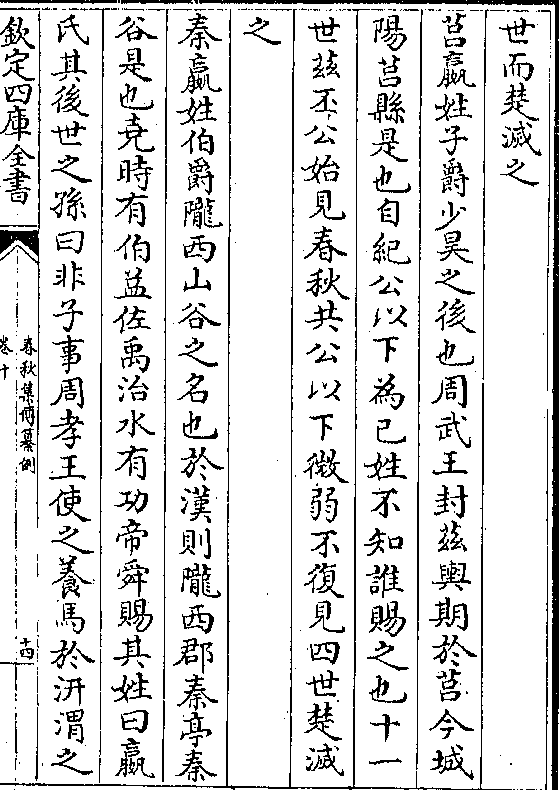 世而楚滅之
莒嬴姓子爵少昊之後也周武王封茲輿期於莒今城
陽莒縣是也自紀公以下為己姓不知誰賜之也十一
世茲丕公始見春秋共公以下微弱不復見四世楚滅
之
秦嬴姓伯爵隴西山谷之名也於漢則隴西郡秦亭秦
谷是也堯時有伯益佐禹治水有功帝舜賜其姓曰嬴
氏其後世之孫曰非子事周孝王使之養馬於汧渭之
欽定四庫全書
春秋集傳纂例
卷十
十四